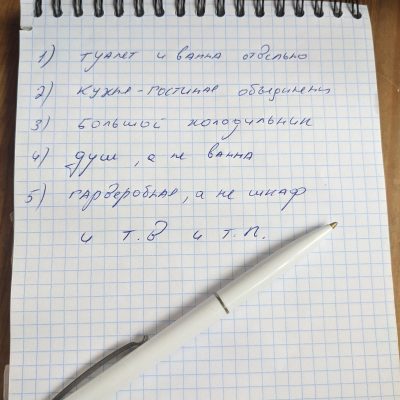 1) туалет и ванна отдельно
2) кухня-гостиная объединены
3) большой холодильник
4) душ, а не ванна
5) гардеробная, а не шкаф
и т.д и т.п.